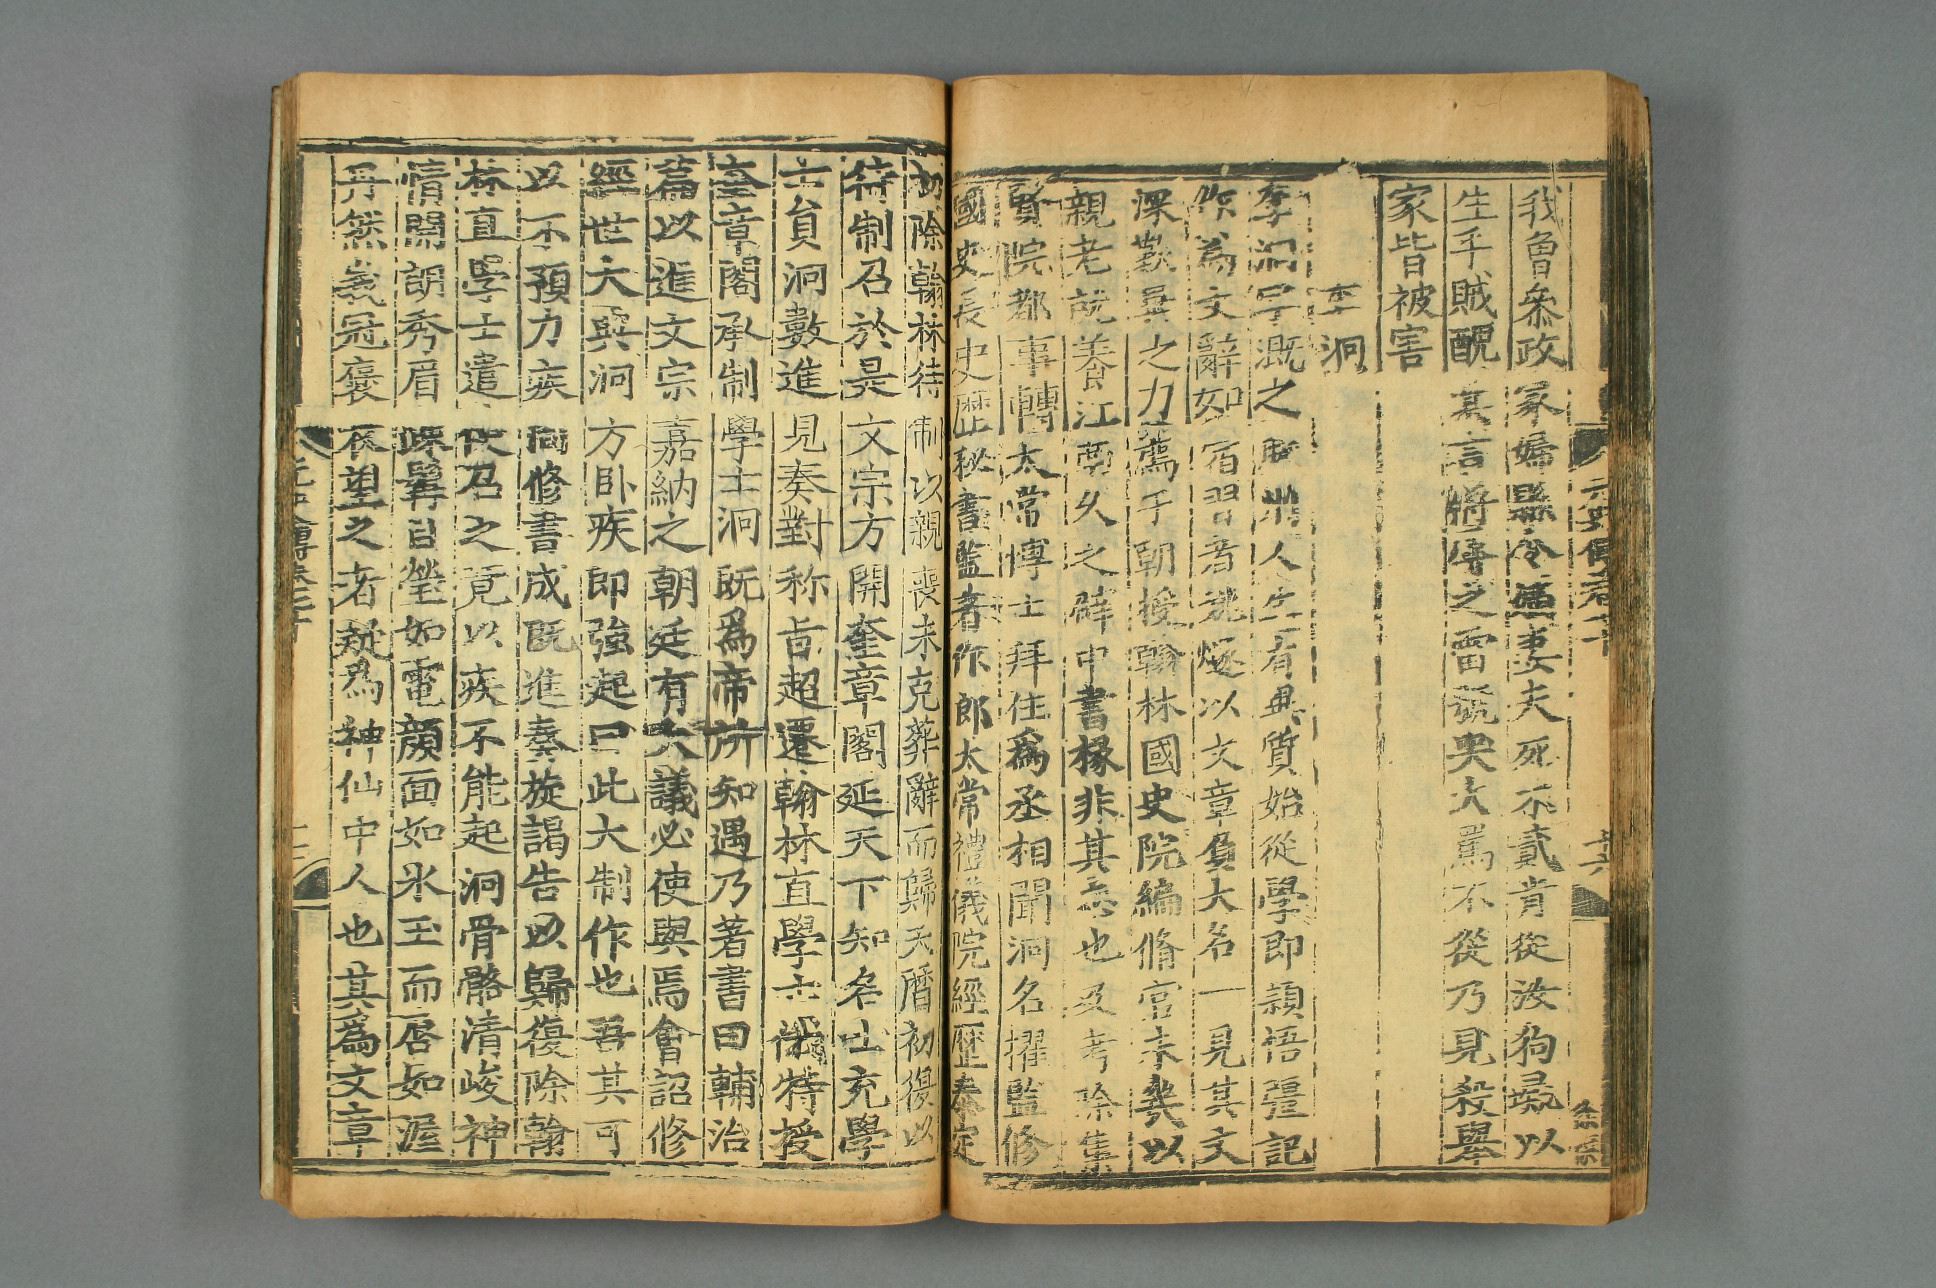 我魯叅政冢婦縣令嫡妻夫死不貳肯從汝狗彘以
生乎賊醜其言將辱之雷號哭大罵不從乃見殺舉
家皆被害
李泂
李泂字溉之滕州人生有異質始從學即頴悟彊記
作爲文辭如宿習者姚燧以文章負大名一見其文
深歎異之力薦于朝授翰林國史院編脩官未幾以
親老就養江南久之辟中書掾非其志也及考除集
賢院都事轉太常博士拜住爲丞相聞泂名擢監修
國史長史歴秘書監著作郎太常禮儀院經歴泰定
初除翰林待制以親喪未克葬辭而歸天曆初復以
待制召於是文宗方開奎章閣延天下知名士充學
士員泂數進見奏對称旨超遷翰林直學士俄特授
奎章閣承制學士泂既爲帝所知遇乃著書曰輔治
篇以進文宗嘉納之朝廷有大議必使與焉會詔修
經世大典泂方卧疾即強起曰此大制作也吾其可
以不預力疾同修書成既進奏旋謁告以歸復除翰
林直學士遣使召之竟以疾不能起泂骨骼清峻神
情開朗秀眉疎髯目瑩如電顔面如氷玉而唇如渥
丹然峩冠褒衣望之者疑爲神仙中人也其爲文章